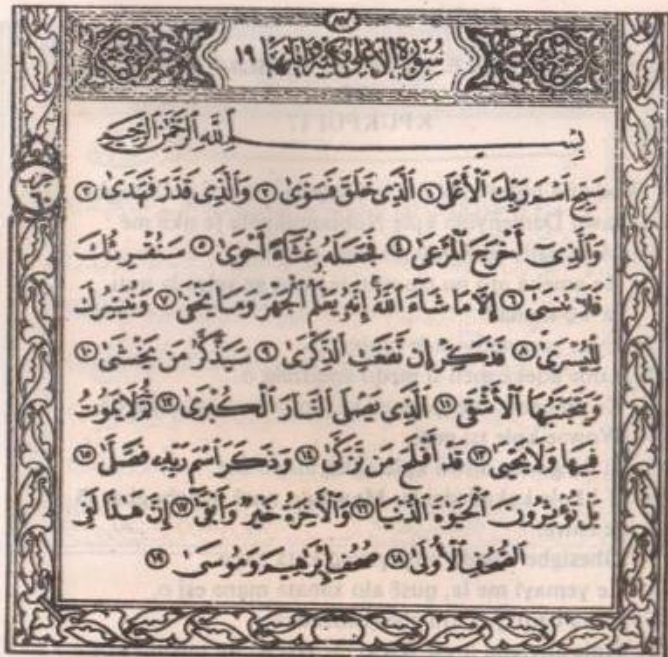 سُورَةُ الأَعْلَى مَكِّيَّة وَآيَاتُهَا ١٩
بِسْمِ ٱللَّهِ ٱلرَّحْمَٰنِ ٱلرَّحِيمِ
سَبِّحِ ٱسْمَ رَبِّكَ ٱلْأَعْلَى ١ ٱلَّذِى خَلَقَ فَسَوَّىٰ ٢ وَٱلَّذِى قَدَّرَ فَهَدَىٰ ٣
حزب ٦٠
وَٱلَّذِىٓ أَخْرَجَ ٱلْمَرْعَىٰ ٤ فَجَعَلَهُۥ غُثَآءً أَحْوَىٰ ٥ سَنُقْرِئُكَ
فَلَا تَنسَىٰٓ ٦ إِلَّا مَا شَآءَ ٱللَّهُ إِنَّهُۥ يَعْلَمُ ٱلْجَهْرَ وَمَا يَخْفَىٰ ٧ وَنُيَسِّرُكَ
لِلْيُسْرَىٰ ٨ فَذَكِّرْ إِن نَّفَعَتِ ٱلذِّكْرَىٰ ٩ سَيَذَّكَّرُ مَن يَخْشَىٰ ١٠
وَيَتَجَنَّبُهَا ٱلْأَشْقَى ١١ ٱلَّذِى يَصْلَى ٱلنَّارَ ٱلْكُبْرَىٰ ١٢ ثُمَّ لَا يَمُوتُ
فِيهَا وَلَا يَحْيَىٰ ١٣ قَدْ أَفْلَحَ مَن تَزَكَّىٰ ١٤ وَذَكَرَ ٱسْمَ رَبِّهِۦ فَصَلَّىٰ ١٥
بَلْ تُؤْثِرُونَ ٱلْحَيَوٰةَ ٱلدُّنْيَا ١٦ وَٱلْأَخِرَةُ خَيْرٌ وَأَبْقَىٰٓ ١٧ إِنَّ هَٰذَا لَفِى
ٱلصُّحُفِ ٱلْأُولَىٰ ١٨ صُحُفِ إِبْرَٰهِيمَ وَمُوسَىٰ ١٩